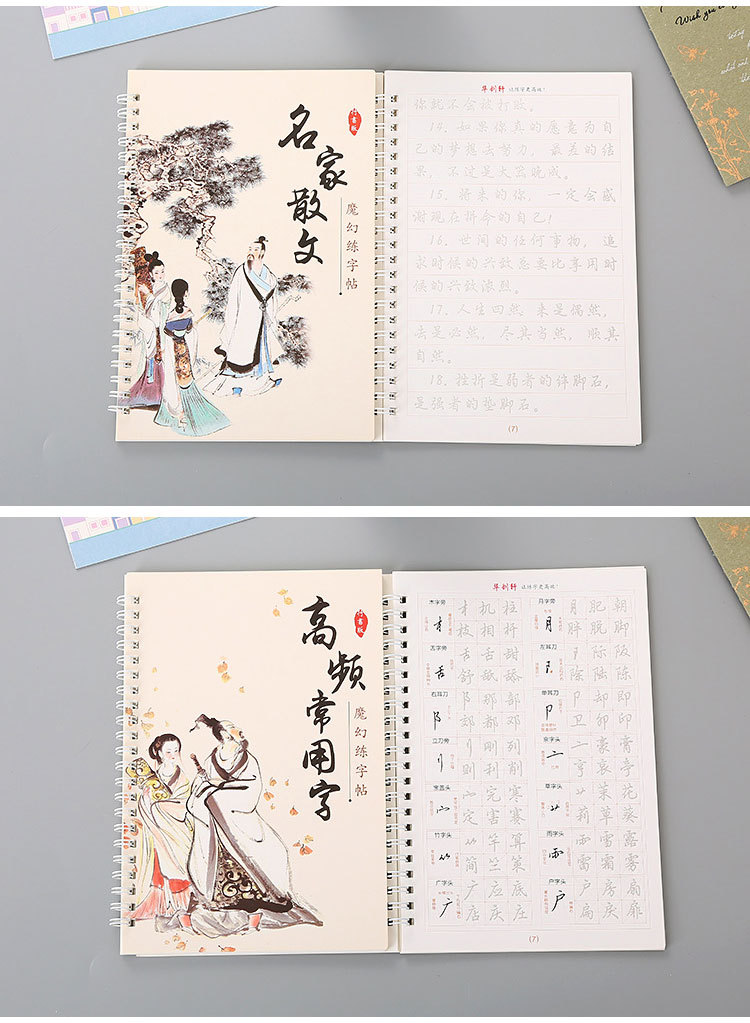 Wish you
名家散文
行书版
魔幻练字帖
华剑轩 让练字更高效!
你就不会被打败。
14. 如果你真的愿意为自
己的梦想去努力，最差的结
果，不过是大器晚成。
15. 将来的你，一定会感
谢现在拼命的自己!
16. 世间的任何事物，追
求时候的兴致总要比享用时
候的兴致浓烈。
17. 人生四然：来是偶然，
去是必然，尽其当然，顺其
自然。
18. 挫折是弱者的绊脚石，
是强者的垫脚石。
(7)
高频常用字
行书版
魔幻练字帖
华剑轩 让练字更高效!
木字旁 机 柱 月字旁 月 肥 朝
枝 相 杆 胖 脱 脚
舌字旁 舌 乱 甜 左耳刀 阝 陈 阪
舒 舐 舔 除 陆 陈
右耳刀 阝 那 部 单耳刀 卩 却 即
郊 都 邓 卫 卸 印
立刀旁 刂 刚 列 京字头 亠 豪 膏
则 利 削 亨 哀 亭
宝盖头 宀 完 寒 草字头 艹 茱 花
定 害 寨 莉 草 葵
竹字头 竺 算 雨字头 雪 露
简 竿 策 雷 霜 雾
广字头 广 应 底 户字头 户 房 扇
店 庆 庄 扁 戾 扉
(7)